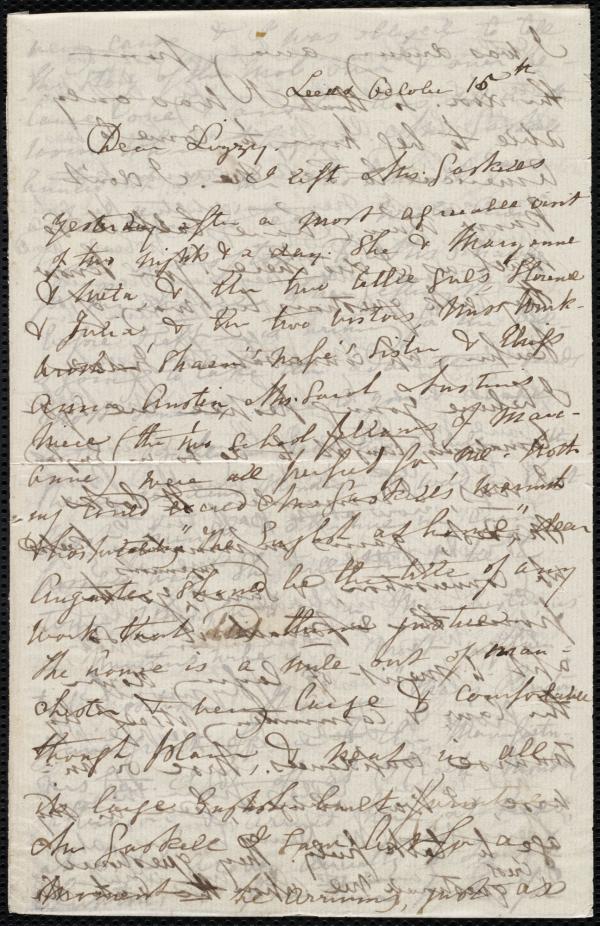 Leeds October 15th
Dear Lizzy.
I left Mrs. Gaskells
yesterday after a most agreeable visit
of two nights & a day. She & Maryanne
& Meta & the two little girls Florence
& Julia & the two visitors Miss Wink-
worth Sister & Miss
Anna Austin Mrs. Sarah Austin's
niece (the school fellows of Mary-
anne) were all perfect for me. Noth-
ing could exceed Mrs Gaskell's warmth
& hospitality "The English at home" dear
Augusta should be the title of any
work that them justice
The house is a mile out of Man-
chester & very large & comfortable
though plain & neat in all
its large
Mr Gaskell I saw but for a
moment he arriving, just as